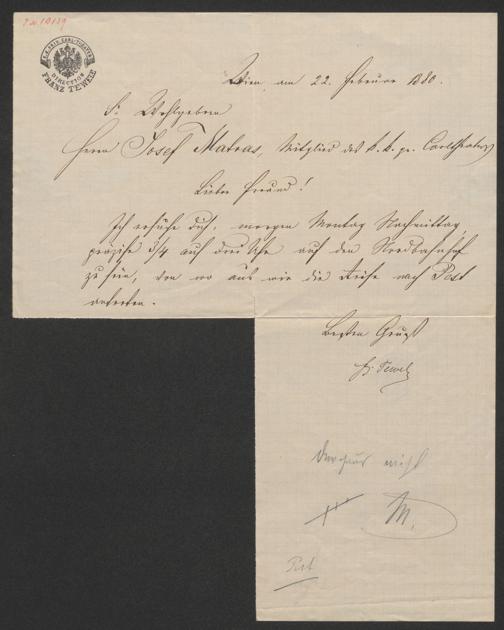 K.K. PRIV. CARL-THEATER
DIRECTION
FRANZ TEWELE
Wien, am 22. Februar 1880.
Sr. Wohlgeboren
Herrn Josef Matras, Mitglied des k. k. pr. Carltheaters
Lieber Freund!
Ich ersuche dich, morgen Montag Nachmittag
präzise 3/4 auf drei Uhr auf dem Nordbahnhof
zu sein, von wo aus wir die Reise nach Pest
antreten.
Besten Gruß
Fr. Tewele
nicht
M.
Pest